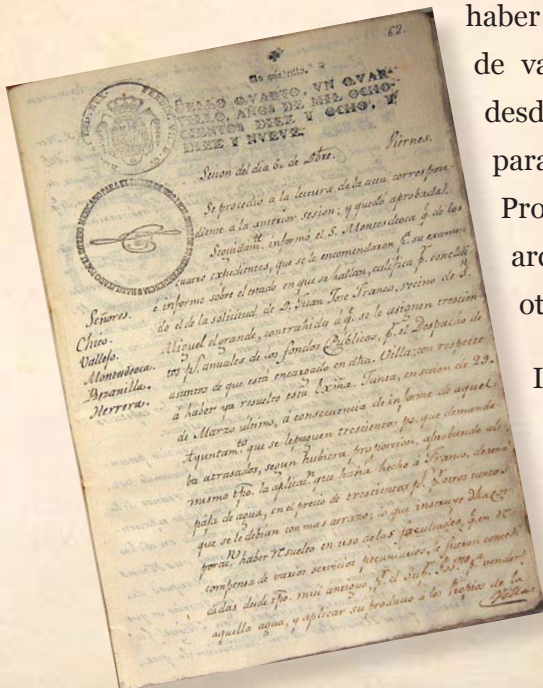 haber
de va
desd
para
Pro
arc
ot
I
62.
Un quartillo.
SELLO QVARTO, VN QVAR-
TILLO, AÑOS DE MIL OCHO-
CIENTOS DIEZ Y OCHO, Y
DIEZ Y NUEVE.
Sesion del dia 6. de Dbre. Viernes.
Se procedió a la lectura de la acta correspon-
diente a la anterior sesion, y quedo aprobada.
informó el S. Montesdeoca q.e de los
cuatro expedientes, que se le encomendaron p.a su examen
é informe sobre el estado en que se hallan, califica p.r concluí-
do el de la solicitud de D. Juan Jose Franco, vecino de S.
Miguel el grande, contrahida á q.e se le asignen trescien-
tos p.s anuales de los fondos Publicos, p.r el Despacho de
asuntos de que está encargado en dha. Villa; con respecto
á haber ya resuelto esta Exma. Junta, en sesion de 29.
de Marzo ultimo, á consecuencia de informe de aquel
Ayuntam.to que se le paguen trescientos p.s que demanda-
ba atrasados, segun hubiera proporcion, aprobando al
mismo tpo. la aplicac.n que havia hecho á Franco, de una
paja de agua, en el precio de trescientos p.s p.r otros tantos
que se le debian con mas atrazo; lo que instruye dha. Cor-
porac.n haber resuelto en uso de las facultades, q.e en re-
compensa de varios servicios pecuniarios, le fueron concedi-
das desde tpo. mui antiguo, p.r el Sub. vender
aquella agua, y aplicar su producto a los Propios de la
Villa
Señores.
Chico.
Vallejo.
Montesdeoca.
Bezanilla.
Herrera.